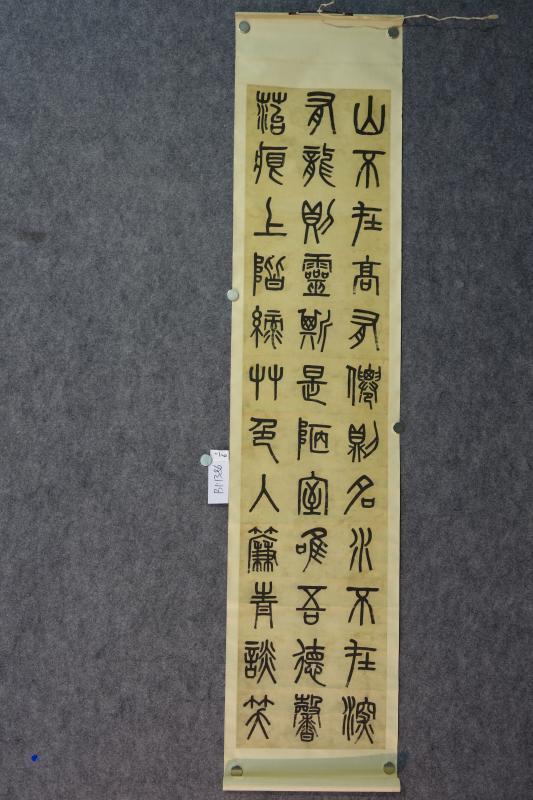 山不在高有僊則名水不在深
有龍則靈斯是陋室唯吾德馨
菭痕上階綠艸色入簾青談笑